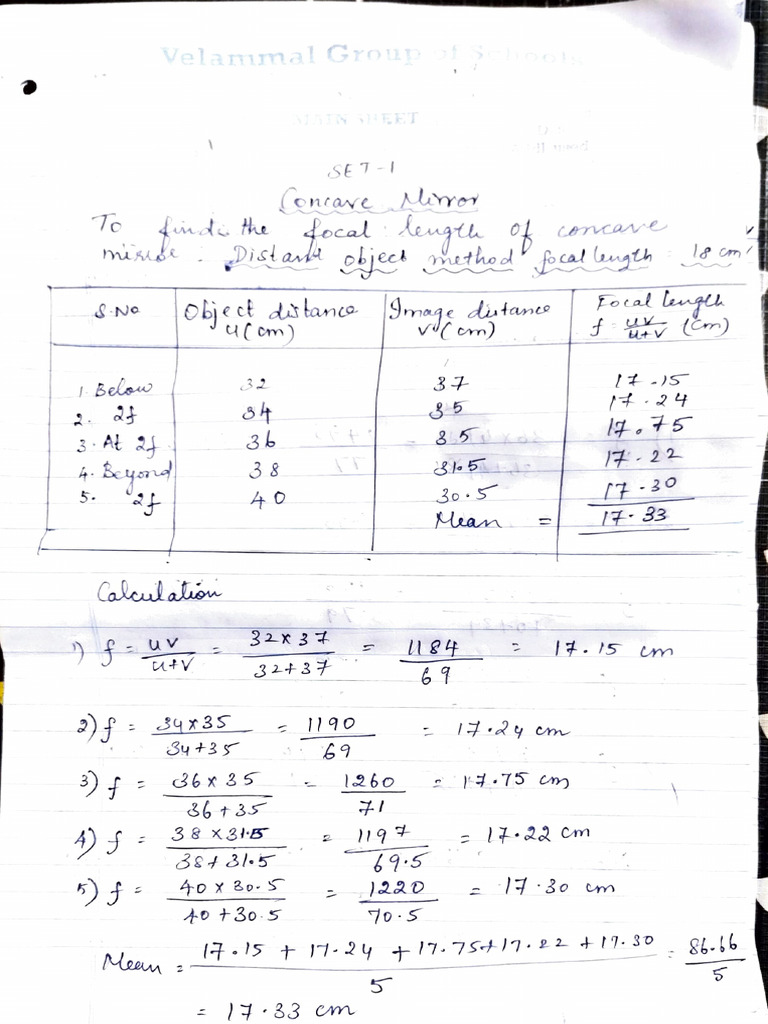 Velammal Group of Schools
MAIN SHEET
SET-1
Concave Mirror
To find the focal length of concave
mirror. Distant object method focal length 18 cm
S.No Object distance u(cm) Image distance v(cm) Focal length f = uv/u+v (cm)
1. Below 32 37 17.15
2. 2f 34 35 17.24
3. At 2f 36 35 17.75
4. Beyond 38 31.5 17.22
5. 2f 40 30.5 17.30
Mean = 17.33
Calculation
1) f = uv/u+v = 32x37/32+37 = 1184/69 = 17.15 cm
2) f = 34x35/34+35 = 1190/69 = 17.24 cm
3) f = 36x35/36+35 = 1260/71 = 17.75 cm
4) f = 38x31.5/38+31.5 = 1197/69.5 = 17.22 cm
5) f = 40x30.5/40+30.5 = 1220/70.5 = 17.30 cm
Mean = 17.15 + 17.24 + 17.75 + 17.22 + 17.30/5 = 86.66/5
= 17.33 cm